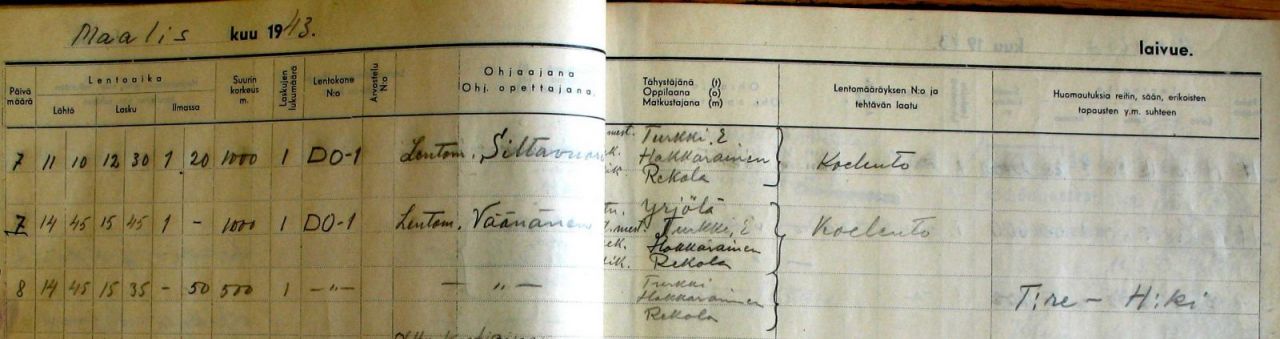 Maalis kuu 1943. laivue.
Päivämäärä Lentoaika Suurin korkeus m. Laskujen lukumäärä Lentokone N:o Arvostelu N:o Ohjaajana Ohj. opettajana. Tähystäjänä (t) Oppilaana (o) Matkustajana (m) Lentomääräyksen N:o ja tehtävän laatu Huomautuksia reitin, sään, erikoisten tapausten y.m. suhteen
Lähtö Lasku Ilmassa
mest. Turkki, E
7 11 10 12 30 1 20 1000 1 DO-1 Lentom. Siltavuori Hakkarainen Koelento
Rekola
Yrjölä
7 14 45 15 45 1 - 1000 1 DO-1 Lentom. Väänänen mest. Turkki, E Koelento
Hakkarainen
Rekola
8 14 45 15 35 - 50 500 1 —"— — "— Turkki
Hakkarainen T:re - H:ki
Rekola